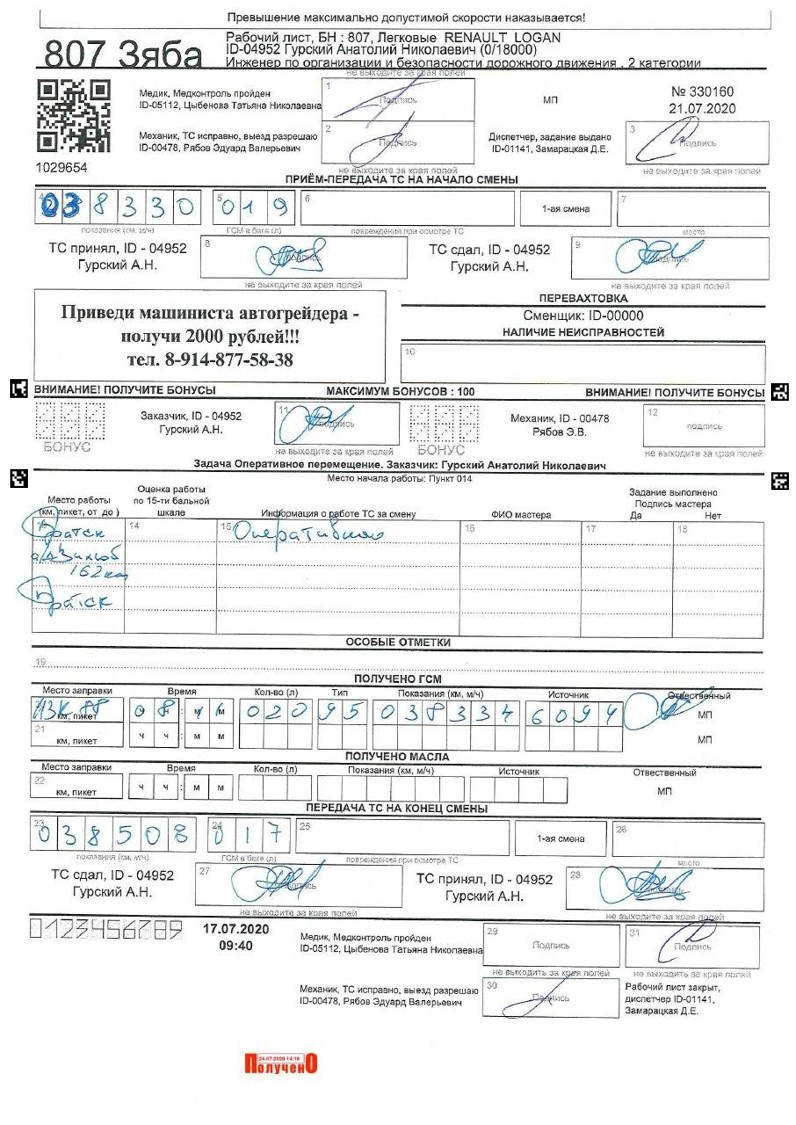 Превышение максимально допустимой скорости наказывается!
807 Зяба
Рабочий лист, БН : 807, Легковые RENAULT LOGAN
ID-04952 Гурский Анатолий Николаевич (0/18000)
Инженер по организации и безопасности дорожного движения . 2 категории
не выходите за края полей
Медик, Медконтроль пройден
ID-05112, Цыбенова Татьяна Николаевна
1
Подпись
МП
№ 330160
21.07.2020
Механик, ТС исправно, выезд разрешаю
ID-00478, Рябов Эдуард Валерьевич
2
Подпись
Диспетчер, задание выдано
ID-01141, Замарацкая Д.Е.
3
Подпись
1029654
не выходите за края полей
не выходите за края полей
ПРИЁМ-ПЕРЕДАЧА ТС НА НАЧАЛО СМЕНЫ
4 038330
5 019
6
1-ая смена
7
показания (км, м/ч)
ГСМ в баке (л)
повреждения при осмотре ТС
место
ТС принял, ID - 04952
Гурский А.Н.
8
Подпись
ТС сдал, ID - 04952
Гурский А.Н.
9
Подпись
не выходите за края полей
не выходите за края полей
Приведи машиниста автогрейдера -
получи 2000 рублей!!!
тел. 8-914-877-58-38
ПЕРЕВАХТОВКА
Сменщик: ID-00000
НАЛИЧИЕ НЕИСПРАВНОСТЕЙ
10
ВНИМАНИЕ! ПОЛУЧИТЕ БОНУСЫ
МАКСИМУМ БОНУСОВ : 100
ВНИМАНИЕ! ПОЛУЧИТЕ БОНУСЫ
БОНУС
Заказчик, ID - 04952
Гурский А.Н.
11
подпись
БОНУС
Механик, ID - 00478
Рябов Э.В.
12
подпись
не выходите за края полей
не выходите за края полей
Задача Оперативное перемещение. Заказчик: Гурский Анатолий Николаевич
Место начала работы: Пункт 014
Место работы
(км, пикет, от до )
Оценка работы
по 15-ти бальной
шкале
Информация о работе ТС за смену
ФИО мастера
Задание выполнено
Подпись мастера
Да Нет
14
15
16
17
18
Братск
Оперативное
162км
Братск
ОСОБЫЕ ОТМЕТКИ
19
ПОЛУЧЕНО ГСМ
Место заправки
Время
Кол-во (л)
Тип
Показания (км, м/ч)
Источник
Ответственный
АЗК 88
км, пикет
020
95
038334
6094
МП
21
км, пикет
ч ч : м м
МП
ПОЛУЧЕНО МАСЛА
Место заправки
Время
Кол-во (л)
Показания (км, м/ч)
Источник
Ответственный
22
км, пикет
ч ч : м м
МП
ПЕРЕДАЧА ТС НА КОНЕЦ СМЕНЫ
23 038508
24 017
25
1-ая смена
26
показания (км, м/ч)
ГСМ в баке (л)
повреждения при осмотре ТС
место
ТС сдал, ID - 04952
Гурский А.Н.
27
Подпись
ТС принял, ID - 04952
Гурский А.Н.
28
Подпись
не выходите за края полей
не выходите за края полей
0123456789
17.07.2020
09:40
Медик, Медконтроль пройден
ID-05112, Цыбенова Татьяна Николаевна
29
Подпись
31
Подпись
не выходите за края полей
не выходите за края полей
Механик, ТС исправно, выезд разрешаю
ID-00478, Рябов Эдуард Валерьевич
30
Подпись
Рабочий лист закрыт,
диспетчер ID-01141,
Замарацкая Д.Е.
ПолученО